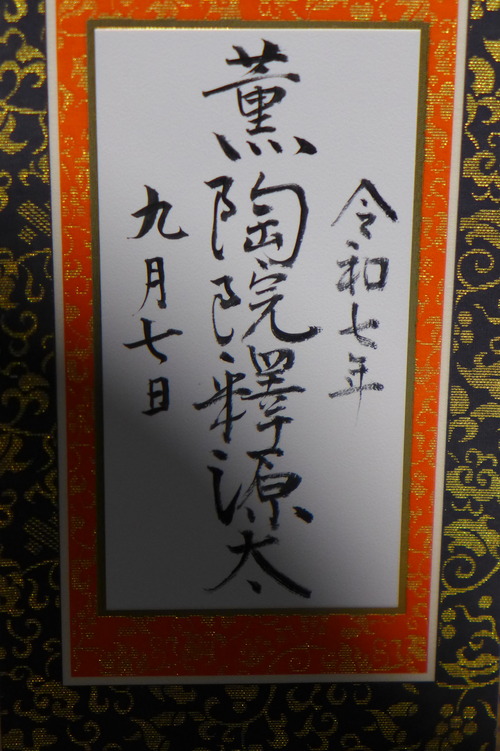 令和七年
薫陶院釋源太
九月七日